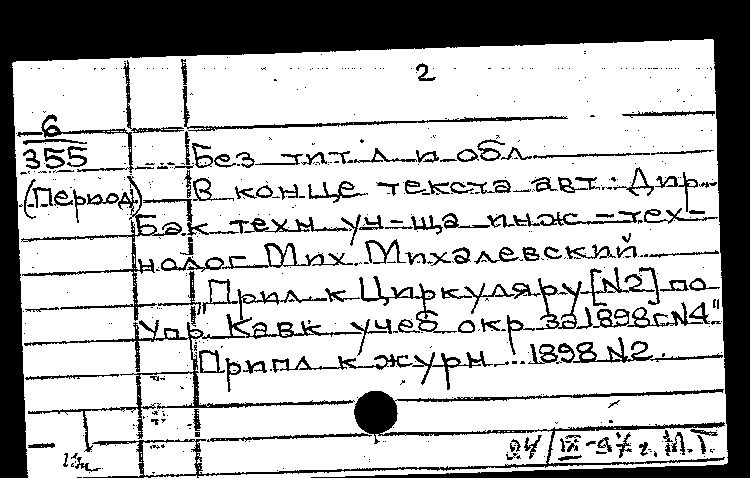 2
6
355
(Период)
Без тит л и обл
В конце текста авт: Дир
Бак техн уч-ща инж-тех-
нолог Мих Михалевский
"Прил к Циркуляру [N2] по
Упр Кавк учеб окр за 1898г N4"
Припл к журн 1898 N2.
г. М.Г.